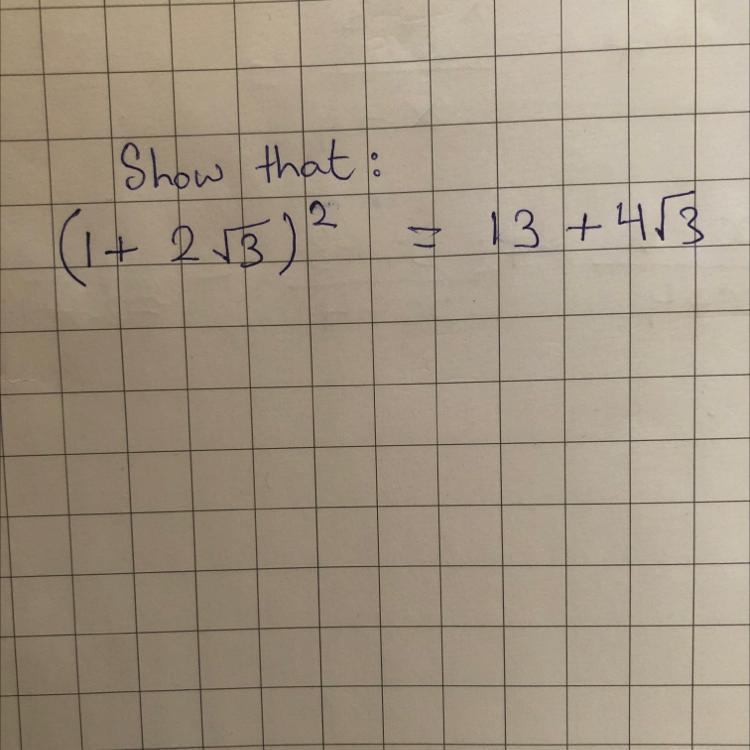 Show that:
(1+ 2√3)² = 13 + 4√3